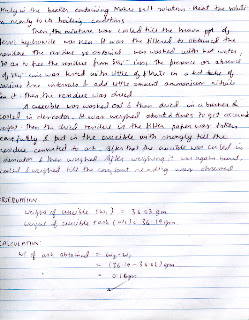 in the beaker containing Mohr's salt solution. Heat the solution
nearly to its boiling conditions.
Then the mixture was boiled till the brown ppt of
ferric hydroxide was seen. It was then filtered to obtained the
residue. The residue so obtained was washed with hot water,
so as to free the residue from ions. The presence or absence
of ions was tested with little of filtrate in a test tube at
various time intervals & add little amount ammonium
in it. Then the residue was dried.
A crucible was washed out & then dried in a burner &
cooled in desiccator. It was weighed about 3 times to get constant
weight. Then the dried residue in the filter paper was taken
carefully & put in the crucible with strongly till the
residue converted to ash. After that the crucible was cooled in
desiccator & then weighed. After weighing it was again heated,
cooled & weighed till the constant reading was observed
OBSERVATION
Weight of crucible (W₁) = 36.03 gm
Weight of crucible + ash (W₂) = 36.19 gm
CALCULATION
Wt of ash obtained = W₂ - W₁
= (36.19 - 36.03) gm
= 0.16 gm